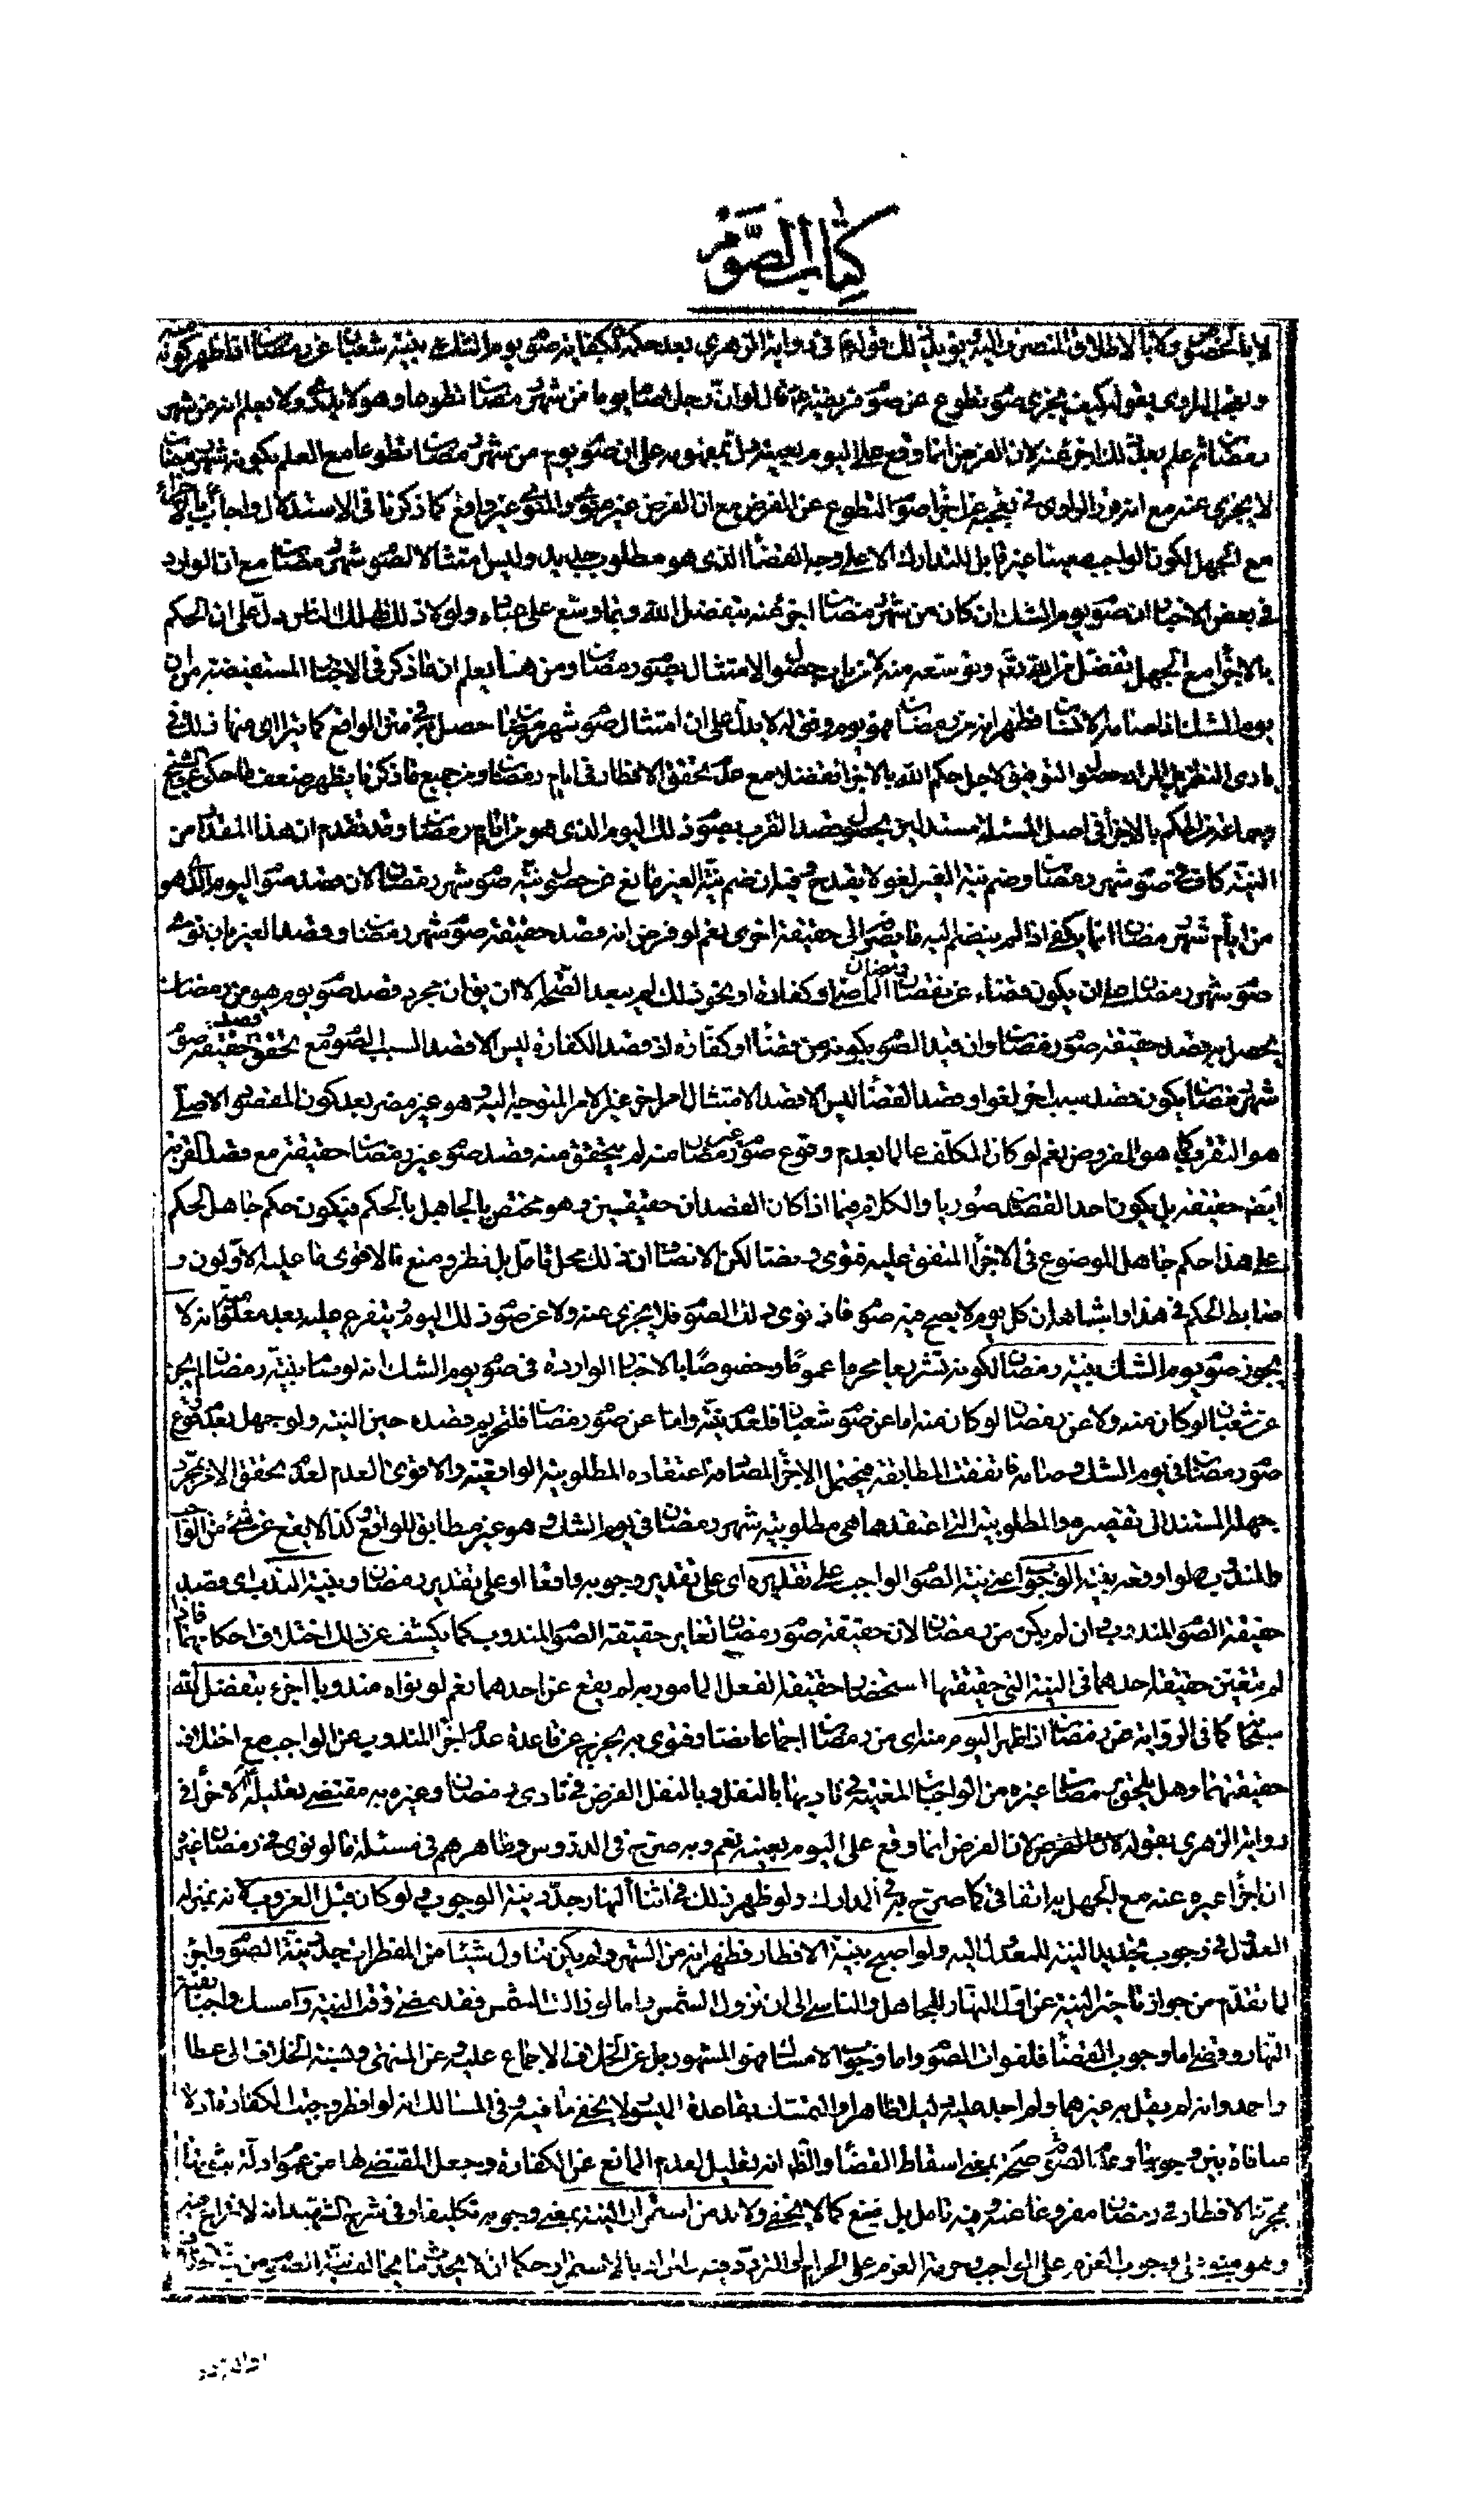 كتاب الصوم
لا بالخصوص ولا بالاطلاق المنصرف اليه ويؤيد ذلك قوله في رواية الزهري بعد حكمه بكفاية صوم يوم الشك بنية شعبان عن رمضان اذا ظهر كونه منه
وتعجب الراوى بقوله كيف يجزى صوم تطوع عن صوم فريضة قال لو ان رجلا صام يوما من شهر رمضان تطوعا وهو لا يدرى ولا يعلم انه من شهر
رمضان ثم علم بعد ذلك اجزء عنه لان الفرض انما وقع على اليوم بعينه دل بمفهومه على ان صوم يوم من شهر رمضان تطوعا مع العلم بكونه شهر رمضان
لا يجزى عنه مع انه الراوى في تعجبه عن اجزاء صوم التطوع عن الفرض مع ان الفرض غير منوى والمنوى غير واقع كما ذكرنا في الاستدلال واجاب بالاجزاء
مع الجهل لكون الواجب معينا غير قابل للتدارك الا على وجه القضاء الذى هو مطلوب جديد وليس امتثالا لصوم شهر رمضان مع ان الوارد
في بعض الاخبار ان صوم يوم الشك ان كان من شهر رمضان اجزء عنه بتفضل الله وبما وسع على عباده ولولا ذلك لهلك الناس دل على ان الحكم
بالاجزاء مع الجهل تفضل من الله تعالى وتوسعة منه لا حصول الامتثال بصوم رمضان ومن هنا يعلم ان ما ذكر في الاخبار المستفيضة من ان
يوم الشك اذا صامه الانسان فظهر انه من رمضان فهو يوم وفق له لا يدل على ان امتثال صوم شهر رمضان حصل به في متن الواقع كما يترائى منها ذلك في
بادى النظر بل المراد حصول التوفيق لاجل حكم الله بالاجزاء تفضلا مع عدم تحقق الافطار في ايام رمضان ومن جميع ما ذكرنا يظهر ضعف ما حكى عن الشيخ
وجماعة من الحكم بالاجزاء في اصل المسئلة مستدلين بحصول قصد القرب بصوم ذلك اليوم الذى هو من ايام رمضان وقد تقدم ان هذا المقدار من
النية كاف في صوم شهر رمضان وضم نية الغير لغو لا يقدح وفيه ان ضم نية الغير مانع عن حصول نية صوم شهر رمضان لان قصد صوم اليوم الذى هو
من ايام شهر رمضان انما يكفى اذا لم ينضم اليه ما يصرفه الى حقيقة اخرى نعم لو فرض انه قصد حقيقة صوم شهر رمضان وقصد الغير بان نوى
صوم شهر رمضان على ان يكون قضاء عن رمضان الماضى او كفارة او نحو ذلك لم يبعد الصحة الا ان يق ان مجرد قصد صوم يوم هو من رمضان
يحصل به قصد حقيقة صوم رمضان وان قيد الصوم بكونه من قضاء او كفارة اذ قصد الكفارة ليس الا قصد السبب الصوم مع تحقق قصد حقيقة صوم
شهر رمضان يكون قصد سبب اخر لغوا وقصد القضاء ليس الا قصد الامتثال لامر اخر غير الامر المتوجه اليه وهو غير مضر بعد كون المقصود الاصلى
هو التقرب كما هو المفروض نعم لو كان المكلف عالما بعدم وقوع صوم غير رمضان منه لم يتحقق منه قصد صوم غير رمضان حقيقة مع قصد القربة
ايضا حقيقة بل يكون احد القصدين صوريا والكلام فيما اذا كان القصدان حقيقيين وهو مختص بالجاهل بالحكم فيكون حكم جاهل الحكم
على هذا حكم جاهل الموضوع في الاجزاء المتفق عليه فتوى ونصا لكن الانصاف ان ذلك محل تامل بل نظر ومنع فالاقوى ما عليه الاولون و
ضابط الحكم في هذا واشباهه ان كل يوم لا يصح فيه صوم فاذا نوى ذلك الصوم فلا يجزى عنه ولا عن صوم ذلك اليوم يتفرع عليه بعد معلومية انه لا
يجوز صوم يوم الشك بنية رمضان لكونه تشريعا محرما عموما وخصوصا بالاخبار الواردة في صوم يوم الشك انه لو صام بنية رمضان لم يجز
عن شعبان لو كان منه ولا عن رمضان لو كان منه اما عن صوم شعبان فلعدم نيته واما عن صوم رمضان فلتحريم قصده حين النية ولو جهل بعدم وقوع
صوم رمضان في يوم الشك وصامه فاتفقت المطابقة فيحتمل الاجزاء لمصادفة اعتقاده المطلوبية الواقعية والاقوى العدم لعدم تحقق الامر بمجرد
جهله المستند الى تقصيره والمطلوبية التى اعتقدها هى مطلوبية شهر رمضان في يوم الشك وهو غير مطابق للواقع وكذا لا يقع عن شئ من الواجب
والمندوب لو اوقعه بنية الوجوب اعنى نية الصوم الواجب على تقديره اى على تقدير وجوبه واقعا او على تقدير رمضان وبنية الندب اى وقصد
حقيقة الصوم المندوب ان لم يكن من رمضان لان حقيقة صوم رمضان تغاير حقيقة الصوم المندوب كما يكشف عن ذلك اختلاف احكامهما فاذا
لم يتعين حقيقة احدهما في النية التى حقيقتها استحضار حقيقة الفعل المامور به لم يقع عن احدهما نعم لو نواه مندوبا اجزء بتفضل الله
سبحانه كما في الرواية عن رمضان اذا ظهر اليوم منه اى من رمضان اجماعا نصا وفتوى وبه يخرج عن قاعدة عدم اجزاء المندوب عن الواجب مع اختلاف
حقيقتهما وهل يلحق برمضان غيره من الواجبات المعينة في تاديها بالنفل وبالنفل الفرض في تادى رمضان وغيره به مقتضى تعليل الاجزاء في
رواية الزهرى بقوله لان الفرض انما وقع على اليوم بعينه نعم وبه صرح في الدروس وظاهرهم في مسئلة ما لو نوى في رمضان غيره
ان اجزاء غيره عنه مع الجهل به اتفاقى كما صرح به في المدارك ولو ظهر ذلك في اثناء النهار جدد نية الوجوب ولو كان قبل الغروب لانه بمنزلة
العدول في وجوب تجديد النية للمعدول اليه ولو اصبح بنية الافطار فظهر انه من الشهر ولم يكن تناول شيئا من المفطرات جدد نية الصوم واجزء
لما تقدم من جواز تاخير النية عن اول النهار للجاهل والناسى الى ان تزول الشمس واما لو زالت الشمس فقد مضى وقت النية وامسك واجبا بقية
النهار وقضى اما وجوب القضاء فلفوات الصوم واما وجوب الامساك فهو المشهور بل عن الخلاف الاجماع عليه وعن المنتهى نسبة الخلاف الى عطا
واحمد وانه لم يقل به غيرهما ولم اجد عليه دليلا ظاهرا والتمسك بقاعدة الميسور لا يخفى ما فيه وفي المسالك انه لو افطر وجبت الكفارة اذ لا
منافاة بين وجوبها وعدم الصوم صحيح بمعنى اسقاط القضاء والظاهر انه تعليل لعدم المانع عن الكفارة وجعل المقتضى لها من عموم ادلة
الافطار في رمضان مفروغا عنه وفيه تامل بل منع كما لا يخفى ولا بد من استمرار النية بمعنى وجوبه تكليفا وفى شرح
وجوب العزم على الواجب وحرمة العزم على الحرام او التردد فيه بالاستمرار حكما ان لا يحدث ما يخالف نية الصوم من نية